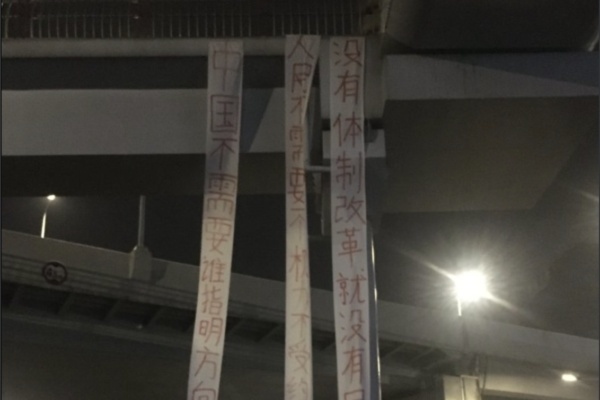 没有体制改革就没有
人民不需要不
中国不需要谁指明方向